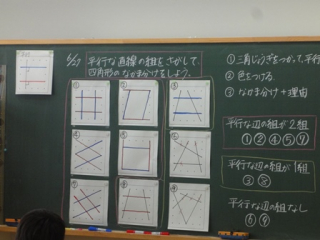 6/27 平行な直線の組をさがして、
四角形のなかま分けをしよう。
① 三角じょうぎをつかって、平行
② 色をつける
③ なかま分け+理由
平行な辺の組が2組
① ② ④ ⑤ ⑦
平行な辺の組が1組
③ ⑧
平行な辺の組なし
⑥ ⑨